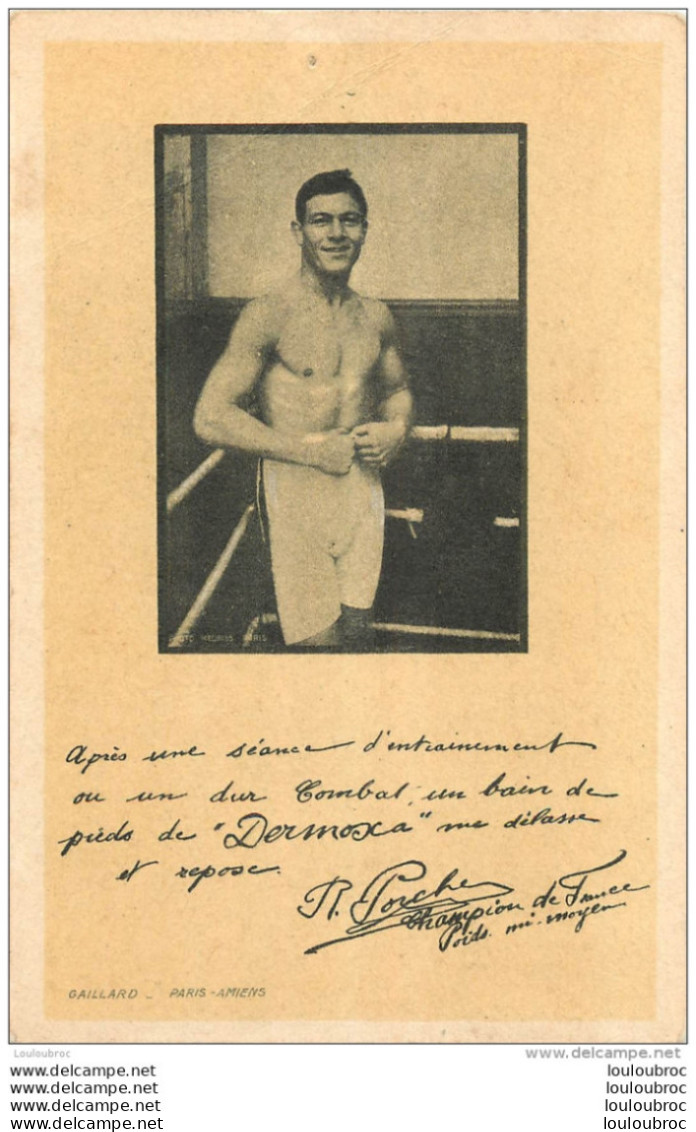 PHOTO MEURISSE PARIS
Après une séance d'entrainement
ou un dur Combat, un bain de
pieds de "Dermoxa" me délasse
et repose.
R. Porcher
Champion de France
Poids. mi-moyen
GAILLARD _ PARIS-AMIENS
Louloubroc
delcampe.net
www.delcampe.net
www.delcampe.net
www.delcampe.net
www.delcampe.net
louloubroc
louloubroc
louloubroc
louloubroc